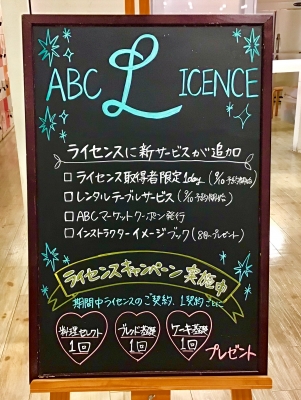 ABC LICENCE
ライセンスに新サービスが追加
□ライセンス取得者限定1day (9/10予約開始)
□レンタルテーブルサービス (9/10予約開始)
□ABCマーケットクーポン発行
□インストラクターイメージブック (8月プレゼント)
ライセンスキャンペーン実施中
期間中ライセンスのご契約、1契約ごとに
料理セレクト 1回
ブレッド基礎 1回
ケーキ基礎 1回
プレゼント